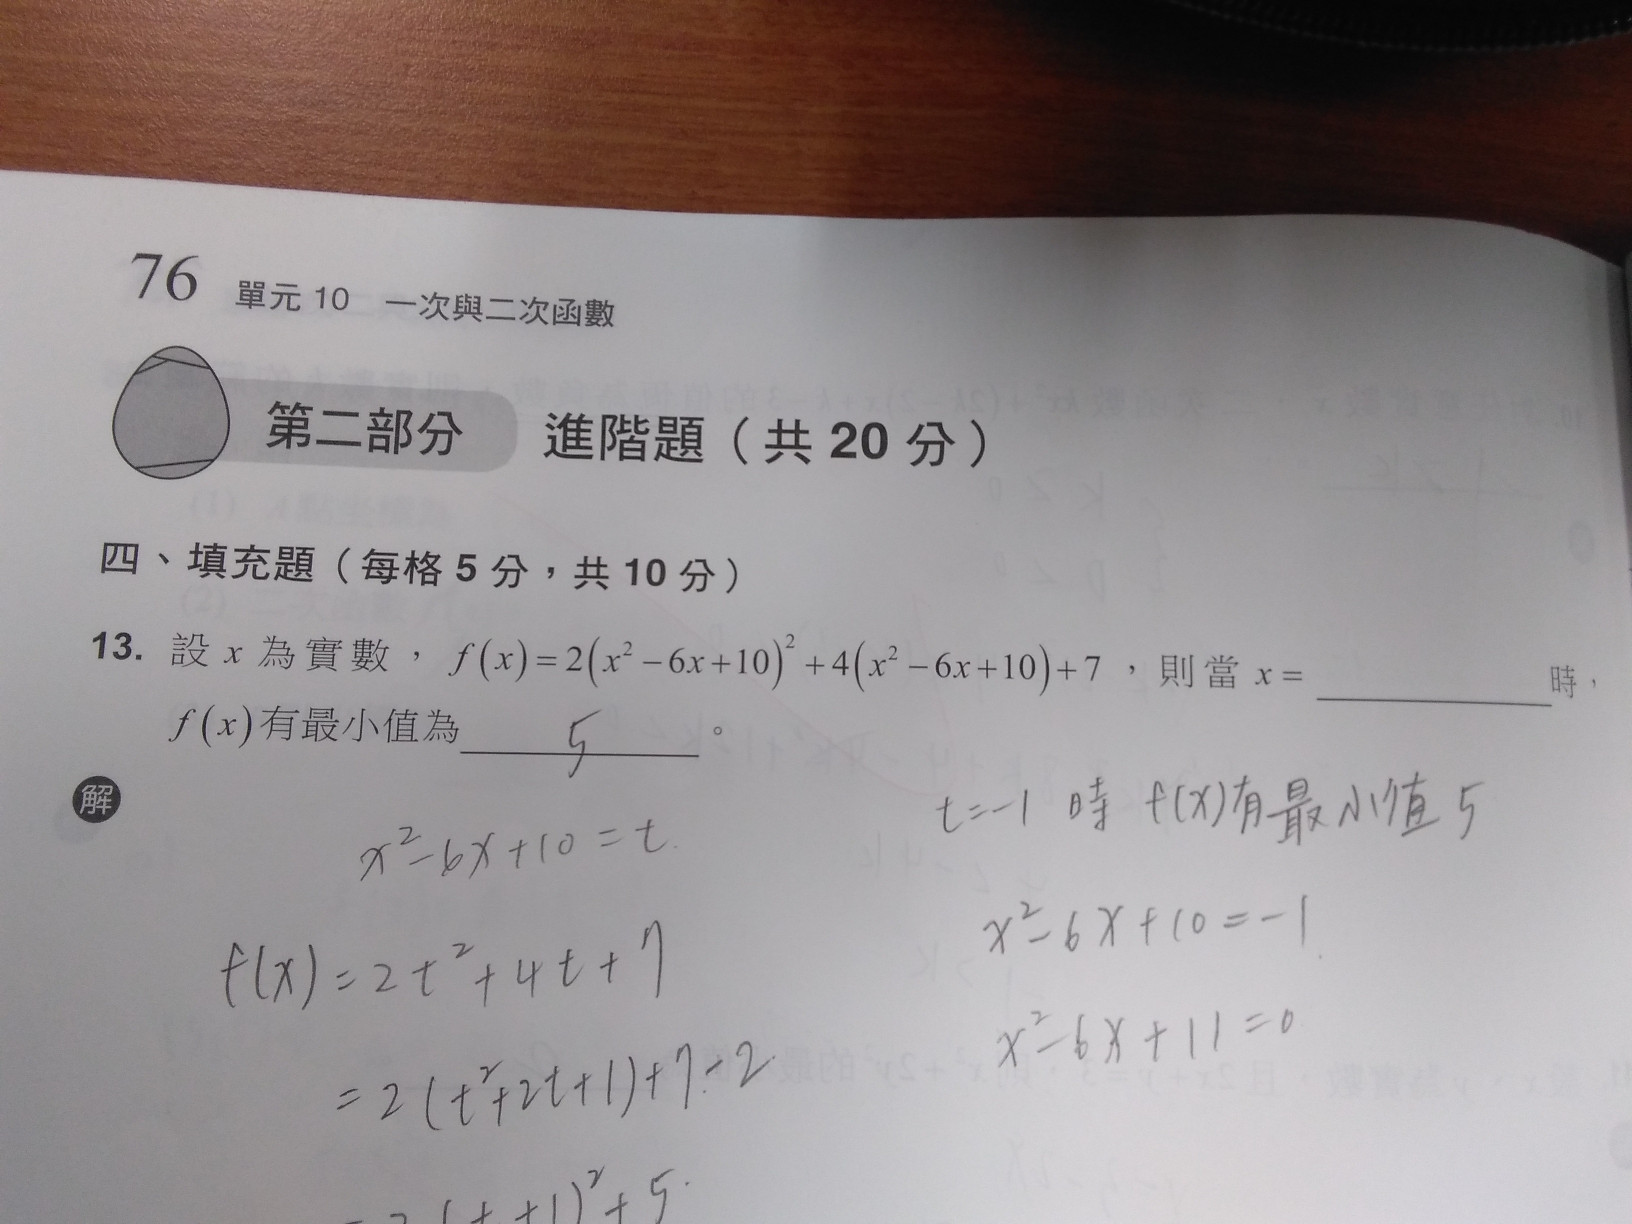 76 單元 10 一次與二次函數
第二部分 進階題（共 20 分）
四、填充題（每格 5 分，共 10 分）
13. 設 x 為實數，f(x)=2(x²−6x+10)²+4(x²−6x+10)+7，則當 x= ______ 時，
f(x)有最小值為 5 。
解
x²−6x+10=t
f(x)=2t²+4t+7
=2(t²+2t+1)+7-2
=2(t+1)²+5.
t=−1 時 f(x)有最小值 5
x²−6x+10=−1
x²−6x+11=0